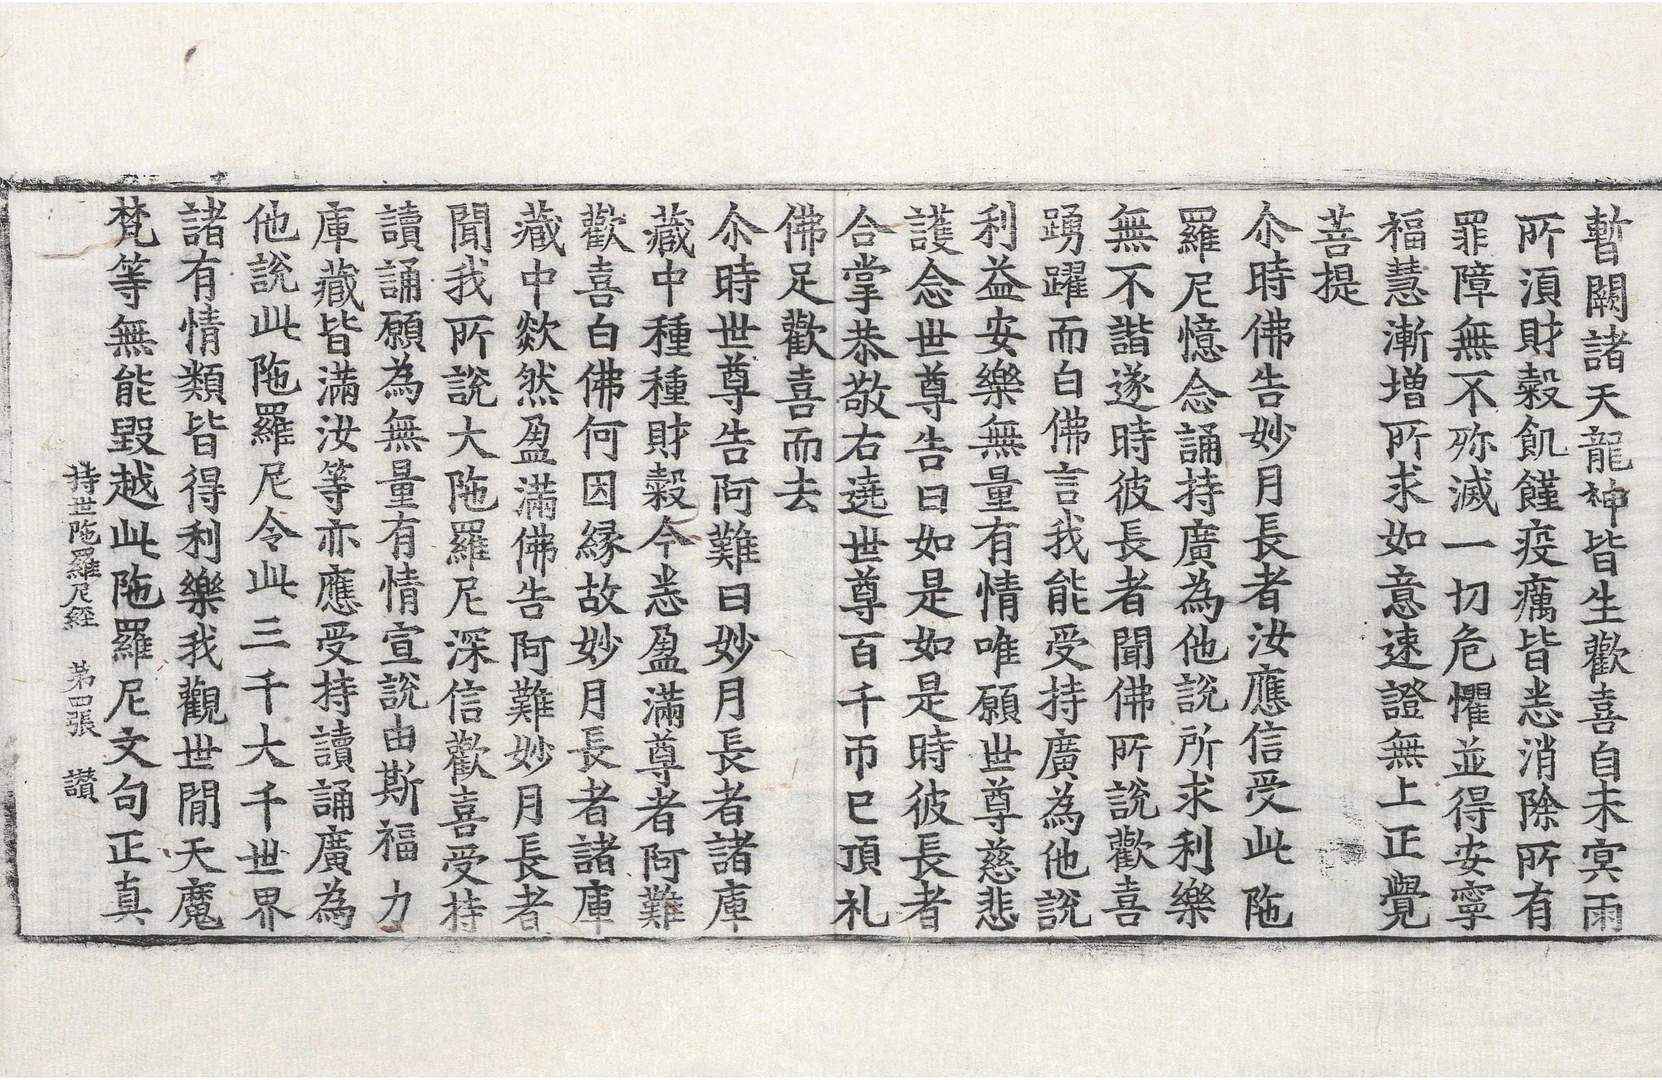 暫闕諸天龍神皆生歡喜自未㝠雨
所湏財穀飢饉疫癘皆悉消除所有
罪障無不殄滅一切危懼並得安寧
福慧漸增所求如意速證無上正覺
菩提
尒時佛告妙月長者汝應信受此陁
羅尼憶念誦持廣為他說所求利樂
無不諧遂時彼長者聞佛所說歡喜
踴躍而白佛言我能受持廣為他說
利益安樂無量有情唯願世尊慈悲
護念世尊告曰如是如是時彼長者
合掌恭敬右遶世尊百千帀已頂礼
佛足歡喜而去
尒時世尊告阿難曰妙月長者諸庫
藏中種種財穀今悉盈滿尊者阿難
歡喜白佛何因緣故妙月長者諸庫
藏中欻然盈滿佛告阿難妙月長者
聞我所說大陁羅尼深信歡喜受持
讀誦願為無量有情宣說由斯福力
庫藏皆滿汝等亦應受持讀誦廣為
他說此陁羅尼令此三千大千世界
諸有情類皆得利樂我觀世閒天魔
梵等無能毀越此陁羅尼文句正真
持世陁羅尼經 第四張 讃